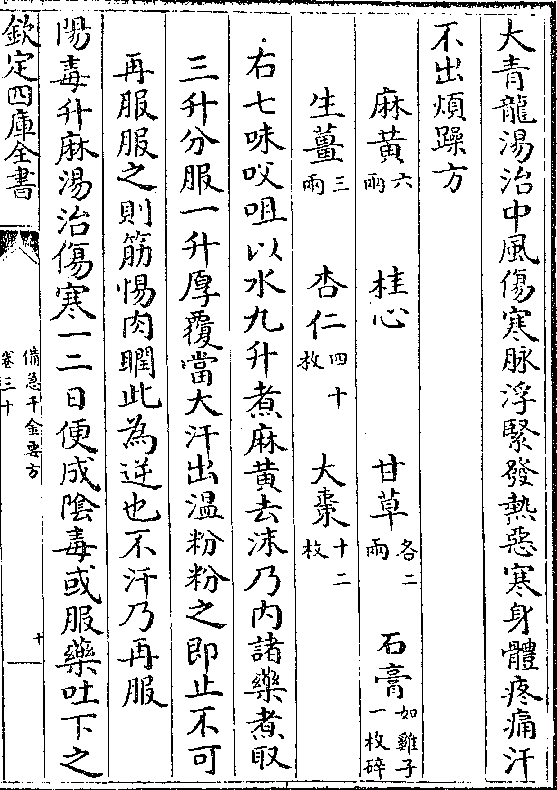 大青龍湯治中風傷寒脉浮緊發熱惡寒身體疼痛汗
不出煩躁方
麻黃六兩 桂心 甘草各二兩 石膏如雞子一枚碎
生薑三兩 杏仁四十枚 大棗十二枚
右七味㕮咀以水九升煮麻黃去沫乃内諸藥煮取
三升分服一升厚覆當大汗出溫粉粉之即止不可
再服服之則筋惕肉瞤此為逆也不汗乃再服
陽毒升麻湯治傷寒一二日便成陰毒或服藥吐下之
欽定四庫全書
備急千金要方
卷三十
十